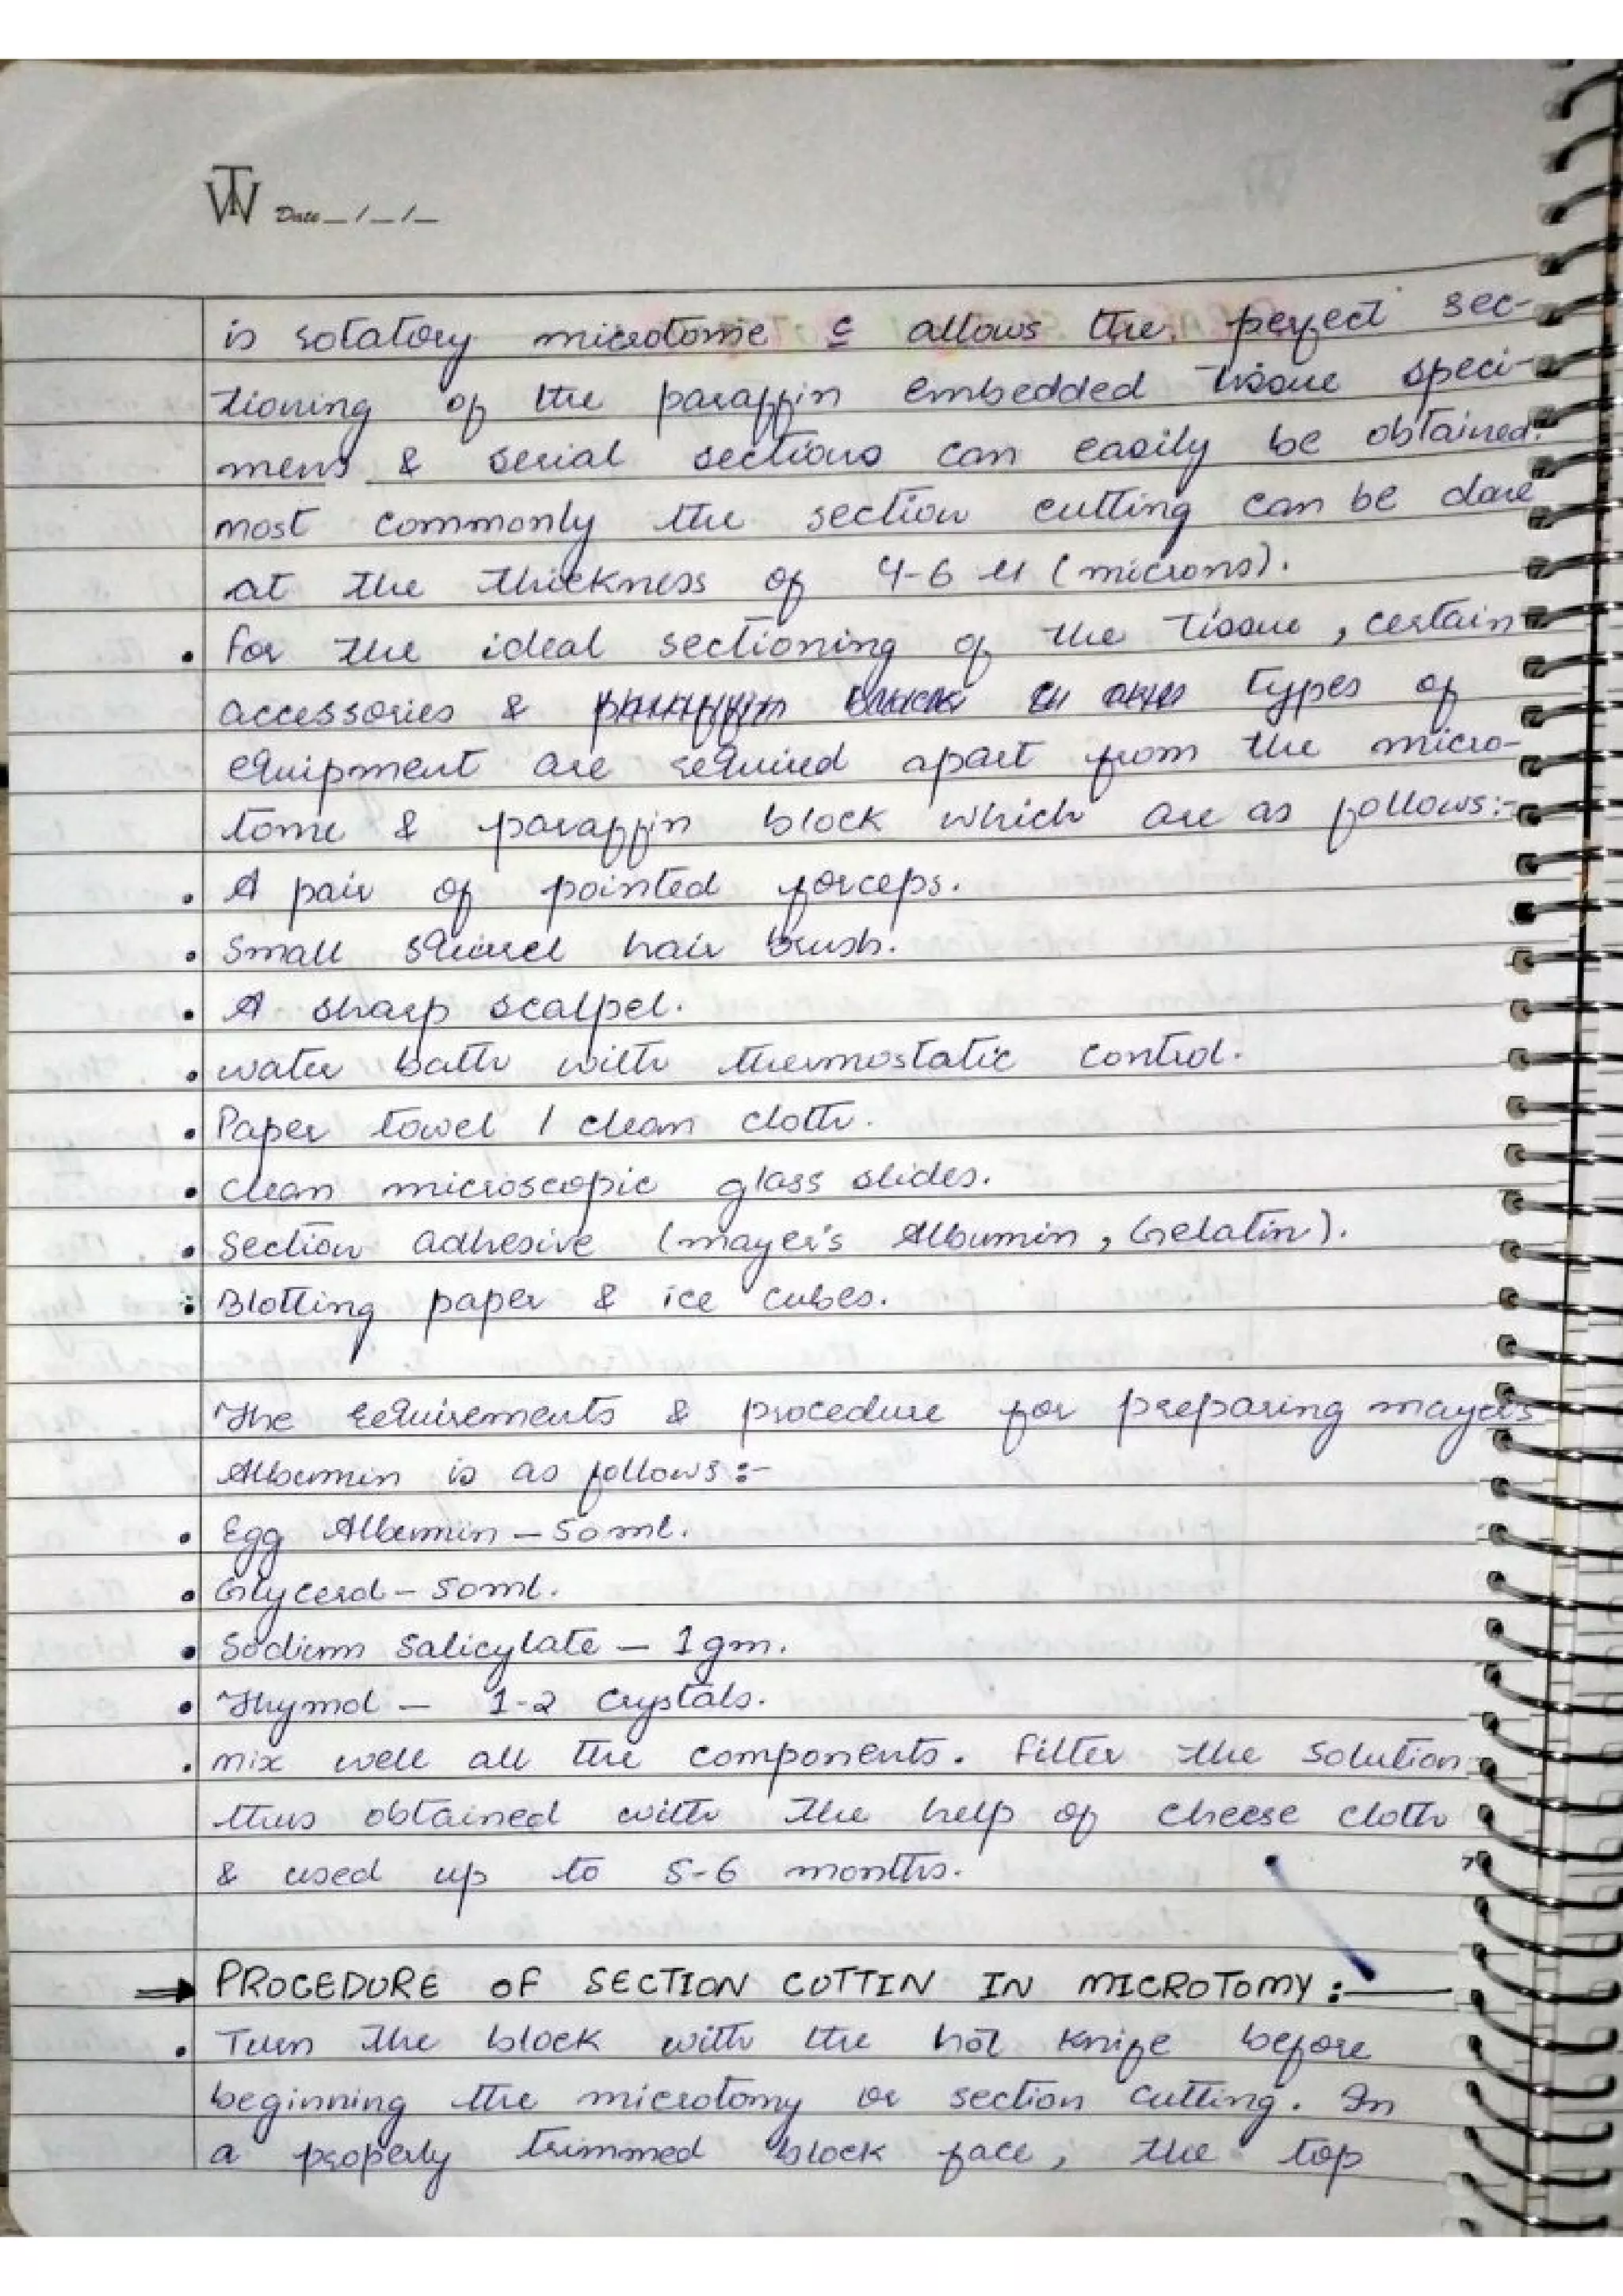 TW Date _/_/_
is rotatory microtome c allows the perfect sec-
tioning of the paraffin embedded tissue speci-
mens & serial sections can easily be obtained.
most commonly the section cutting can be done
at the thickness of 4-6 μ (microns).
• for the ideal sectioning of the tissue, certain
accessories & types of
equipment are required apart from the micro-
tome & paraffin block which are as follows:-
• A pair of pointed forceps.
• Small squirrel hair brush.
• A sharp scalpel.
• water bath with thermostatic control.
• Paper towel / clean cloth.
• clean microscopic glass slides.
• Section adhesive (mayer's Albumin, Gelatin).
• Blotting paper & ice cubes.
The requirements & procedure for preparing mayers
Albumin is as follows:-
• Egg Albumin - 50ml.
• Glycerol - 50ml.
• Sodium Salicylate - 1gm.
• Thymol - 1-2 crystals.
• mix well all the components. filter the solution
thus obtained with the help of cheese cloth
& used up to 5-6 months.
⇒ PROCEDURE OF SECTION CUTTIN IN MICROTOMY:-
• Turn the block with the hot knife before
beginning the microtomy or section cutting. In
a properly trimmed block face, the top